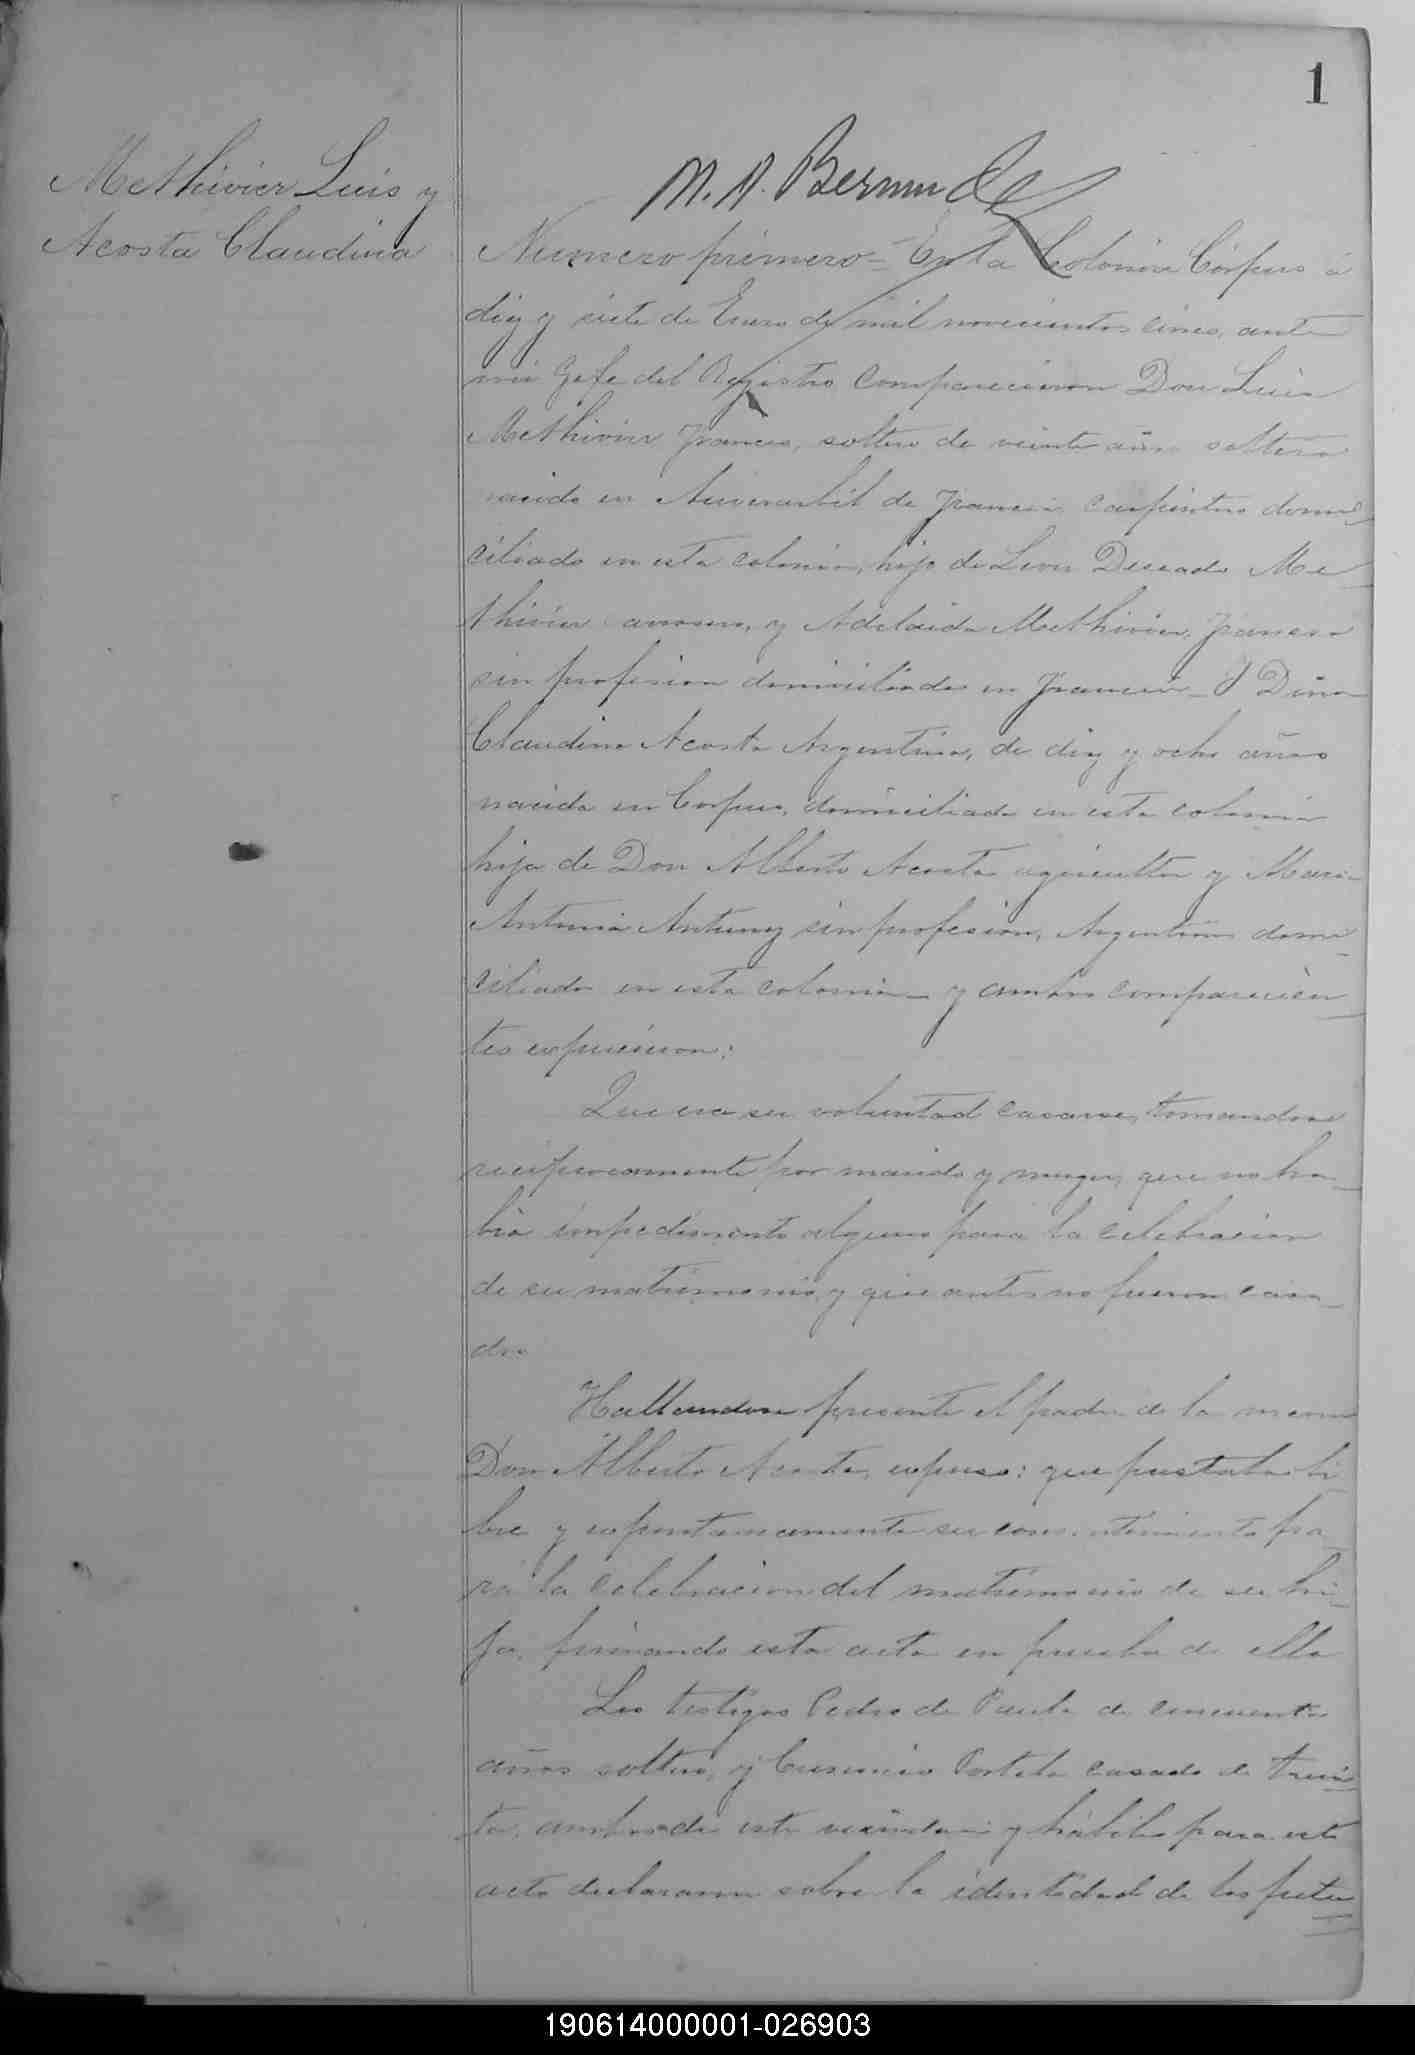 1
Methivier Luis y
Acosta Claudina
M. A. Bermudez
Numero primero = En la Colonia Córpus á
diez y siete de Enero de mil novecientos cinco, ante
mi Gefe del Registro comparecieron Don Luis
Methivier frances, soltero de veinte años soltero
nacido en de Francia carpintero domi-
ciliado en esta colonia, hijo de Leon Deseado Me-
thivier y Adelaida Methivier, francesa
sin profesion domiciliados en Francia - I Doña
Claudina Acosta Argentina, de diez y ocho años
nacida en Corpus, domiciliada en esta colonia
hija de Don Alberto Acosta agricultor y Maria
Antonia Antunez sin profesion, Argentinos domi-
ciliados en esta colonia - y ambos comparecien-
tes expusieron:
Que era su voluntad casarse, tomandose
reciprocamente por marido y muger, que no ha-
bia impedimento alguno para la celebracion
de su matrimonio, y que antes no fueron casa-
dos
Hallandose presente el padre de la menor
Don Alberto Acosta, expuso: que prestaba li-
bre y espontaneamente su consentimiento pa-
ra la celebracion del matrimonio de su hi-
ja, firmando esta acta en prueba de ello
Los testigos Pedro de Paula de cincuenta
años soltero, y Portela casado de trein-
ta, ambos de este vecindario y hábiles para este
acto declararon sobre la identidad de los futu-
190614000001-026903